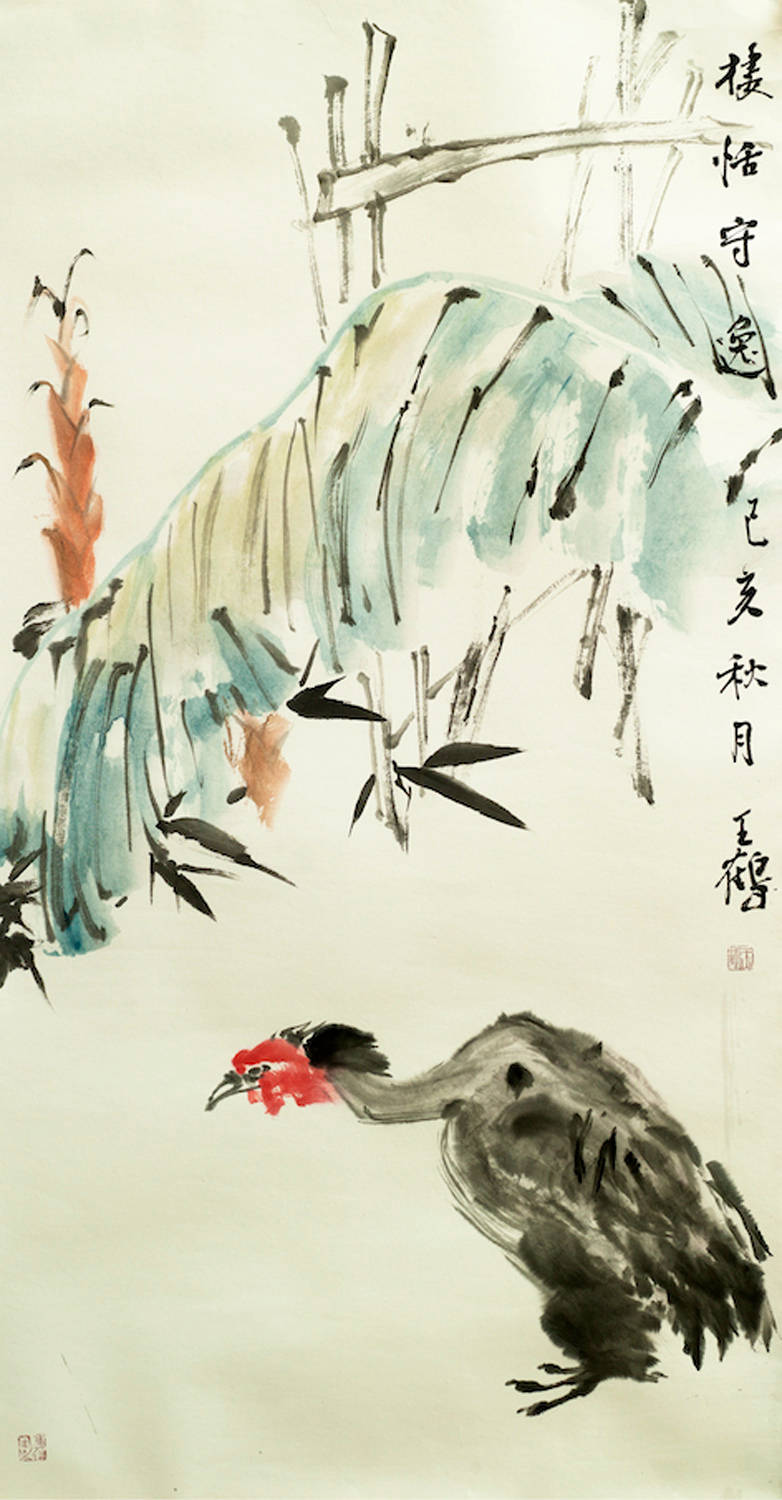 棲恬守逸
己亥秋月
王鶴